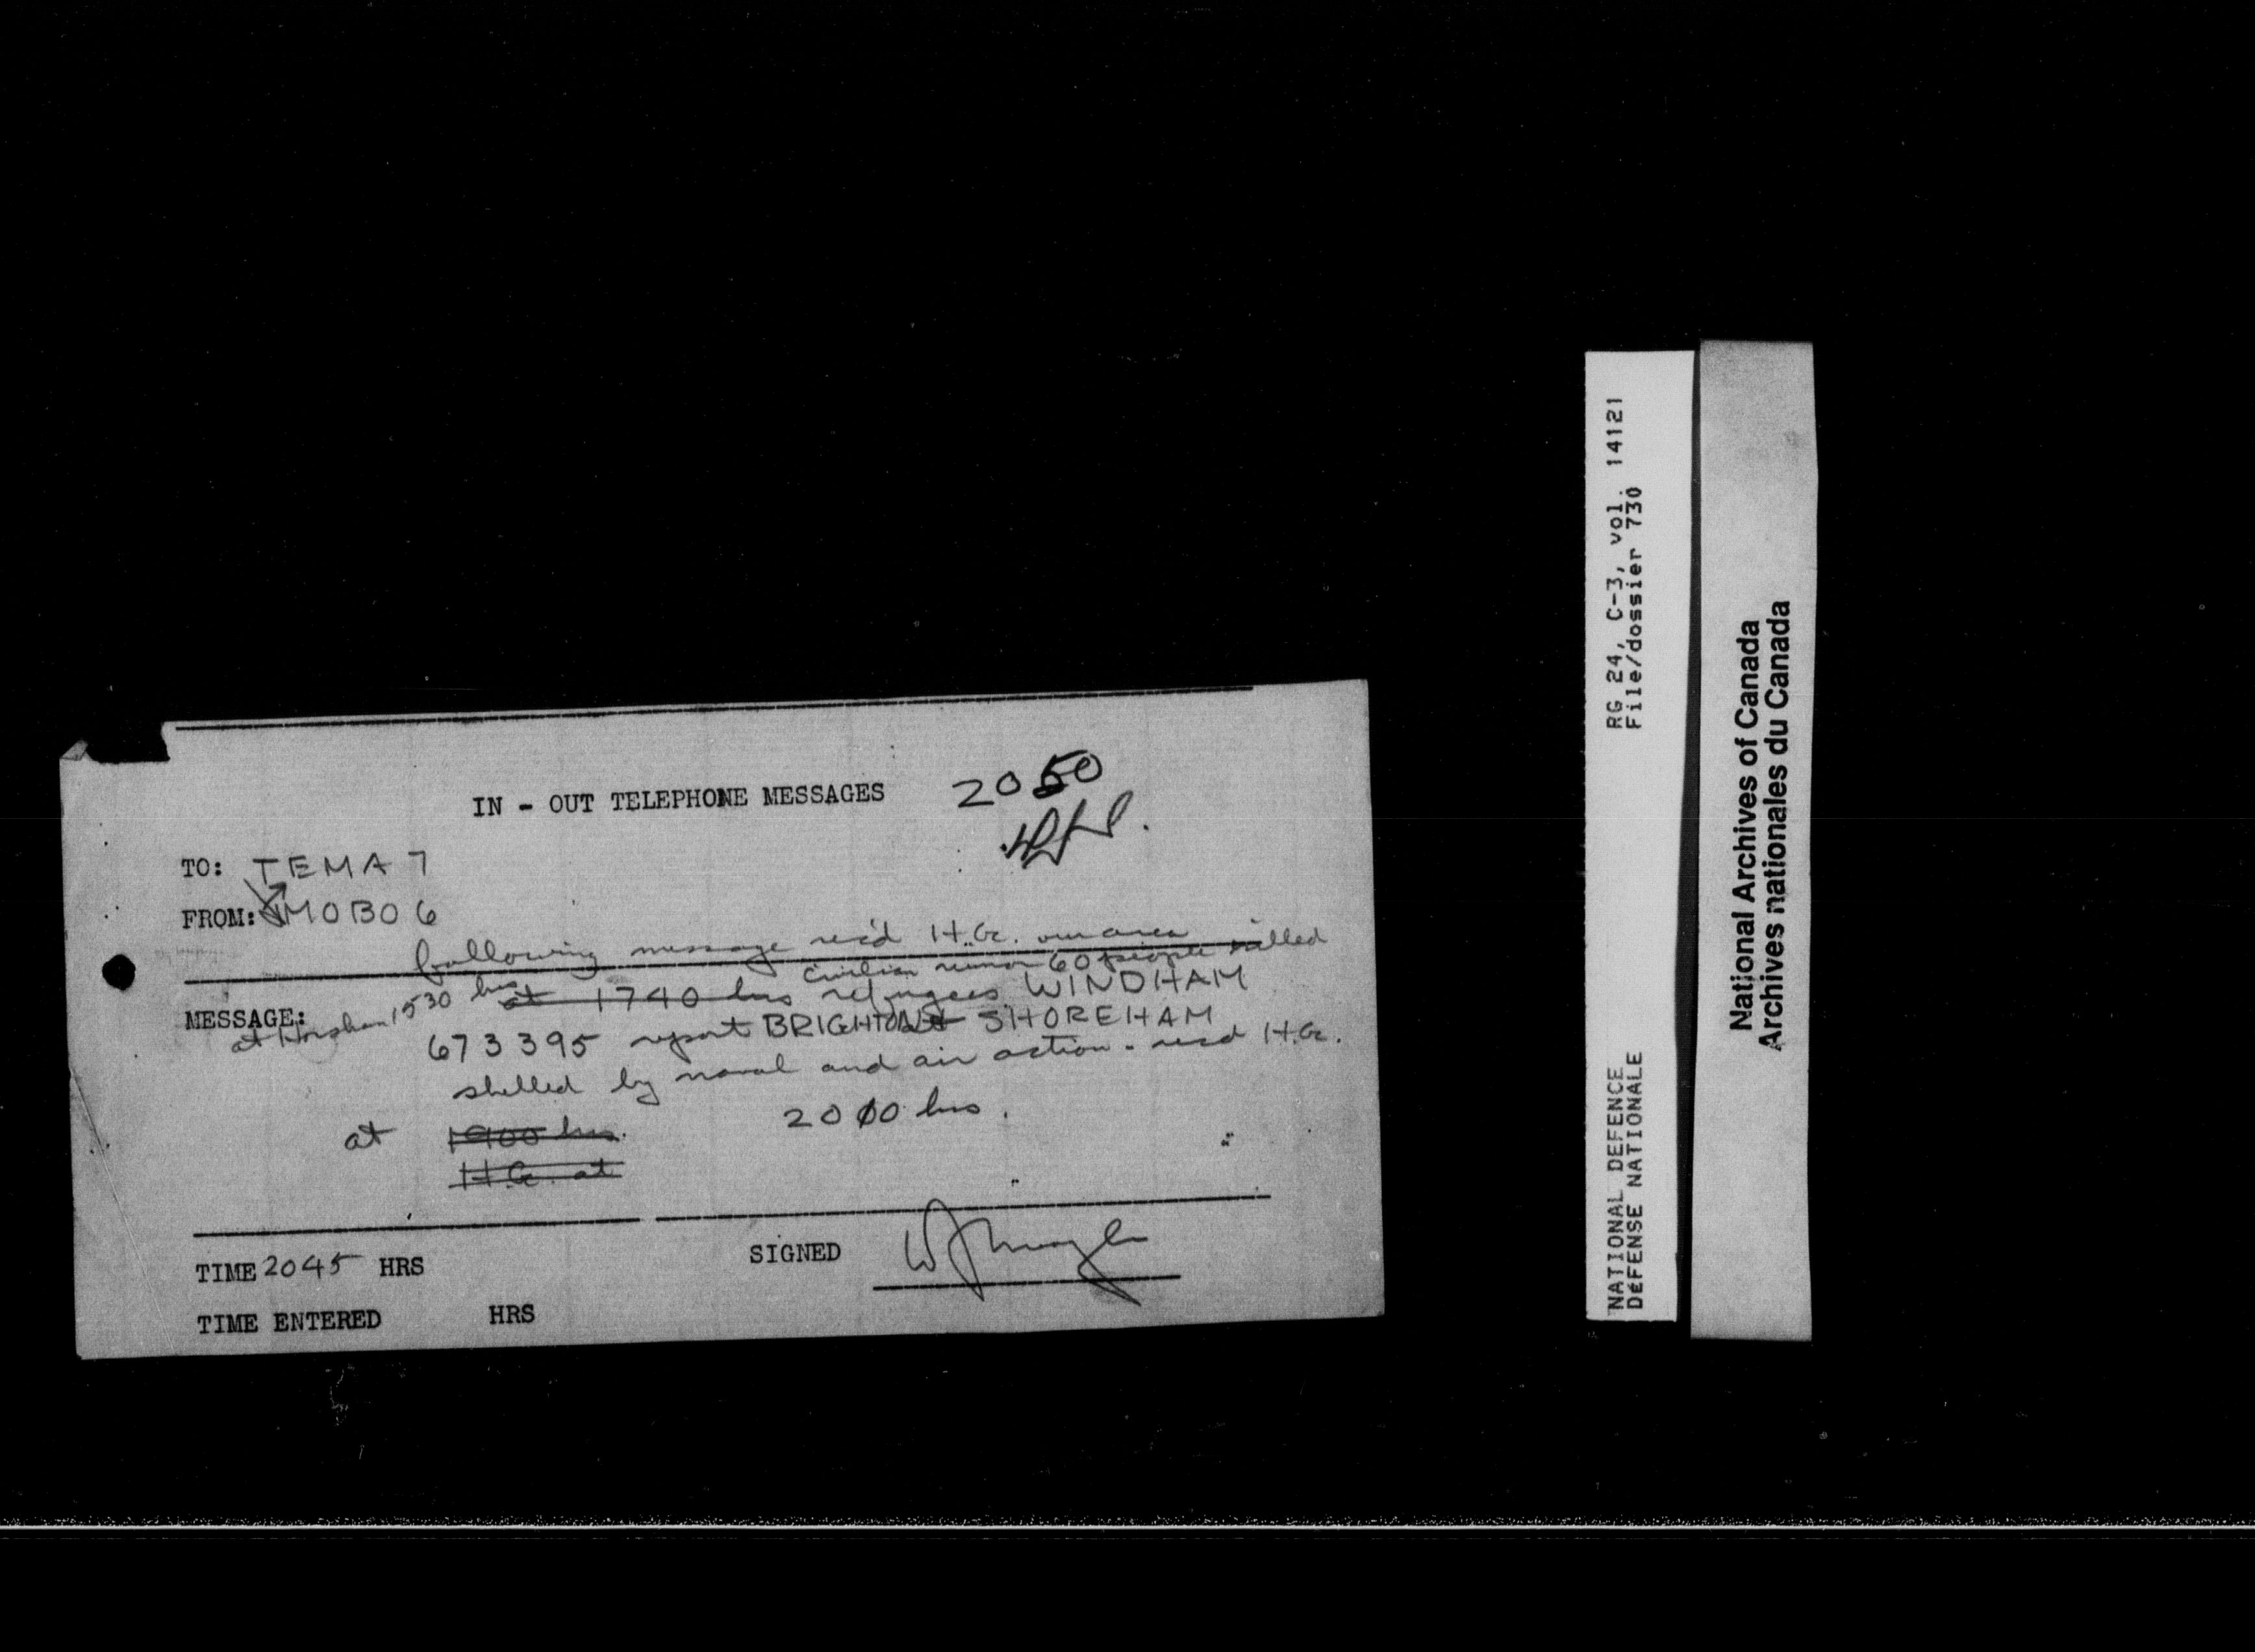 IN - OUT TELEPHONE MESSAGES 2050
TO: TEMA 7
FROM: MOBO 6
following message rec'd H.G. our area
civilian rumor 60 people killed
at Horsham 1530 hrs
MESSAGE: at 1740 hrs refugees WINDHAM
673395 report BRIGHTON SHOREHAM
shelled by naval and air action - recd H.G.
at 1900 hrs. 2000 hrs.
H.G. at
TIME 2045 HRS SIGNED
TIME ENTERED HRS
RG 24, C-3, vol. 14121
File/dossier 730
NATIONAL DEFENCE
DéFENSE NATIONALE
National Archives of Canada
Archives nationales du Canada